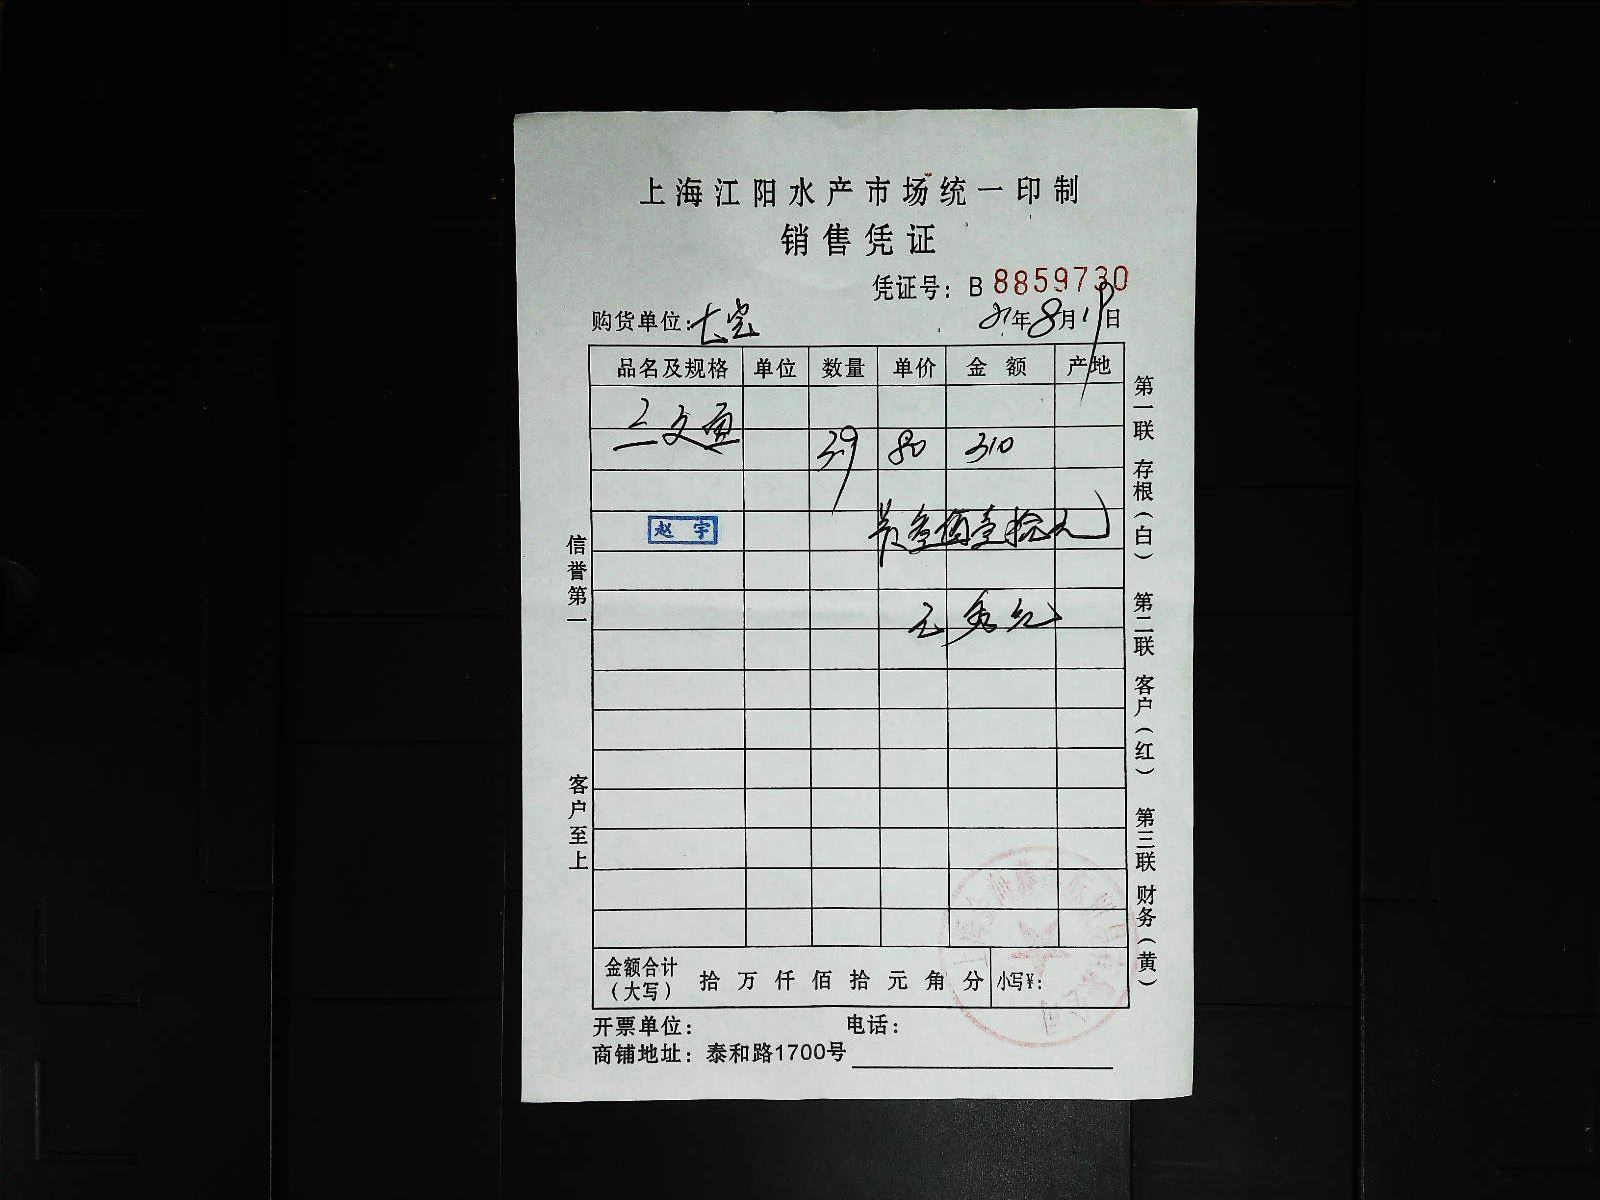 上海江阳水产市场统一印制
销售凭证
凭证号：B 8859730
购货单位：
21年8月19日
品名及规格 单位 数量 单价 金额 产地
三文鱼 3.9 80 310
叁佰壹拾元
赵宇
信誉第一
客户至上
第一联 存根（白） 第二联 客户（红） 第三联 财务（黄）
金额合计（大写） 拾 万 仟 佰 拾 元 角 分 小写¥：
开票单位： 电话：
商铺地址：泰和路1700号